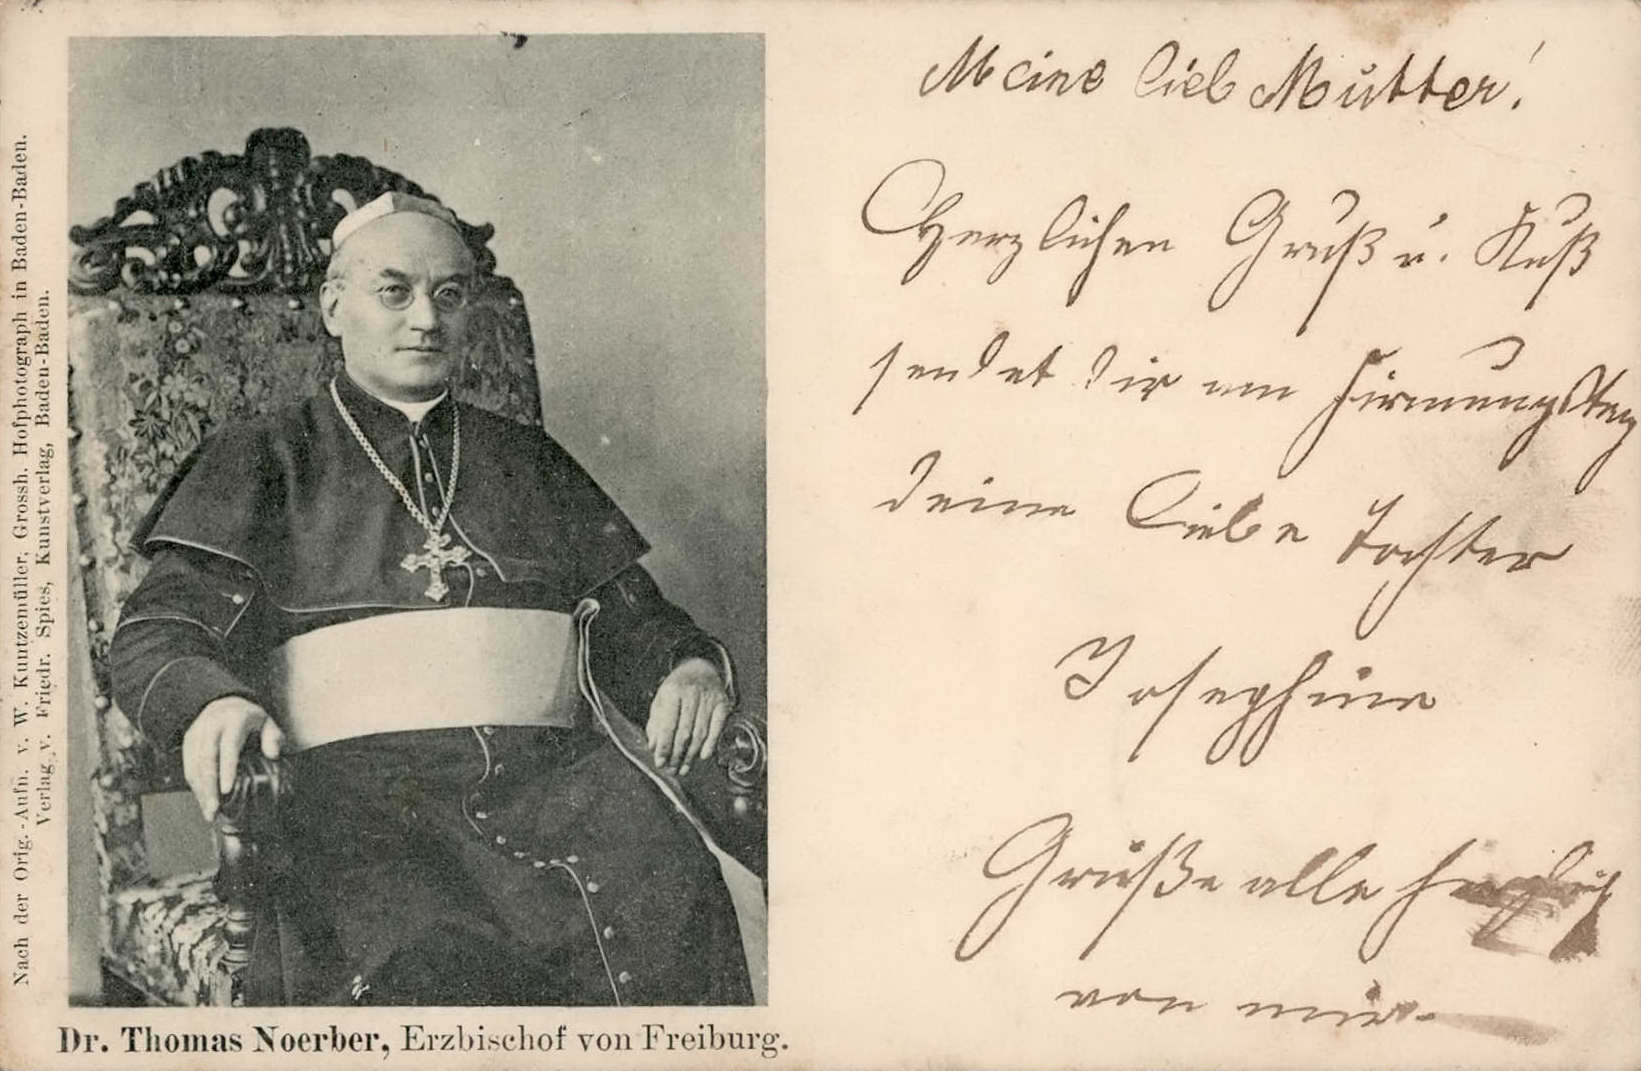 Nach der Orig.-Aufn. v. W. Kuntzemüller, Grossh. Hofphotograph in Baden-Baden.
Verlag v. Friedr. Spies, Kunstverlag, Baden-Baden.
Dr. Thomas Noerber, Erzbischof von Freiburg.
Meine lieb Mutter!
Herzlichen Gruß u. Kuß
sendet dir am Firmungstag
deine Liebe Tochter
Josephine
Grüße alle herzlich
von mir.